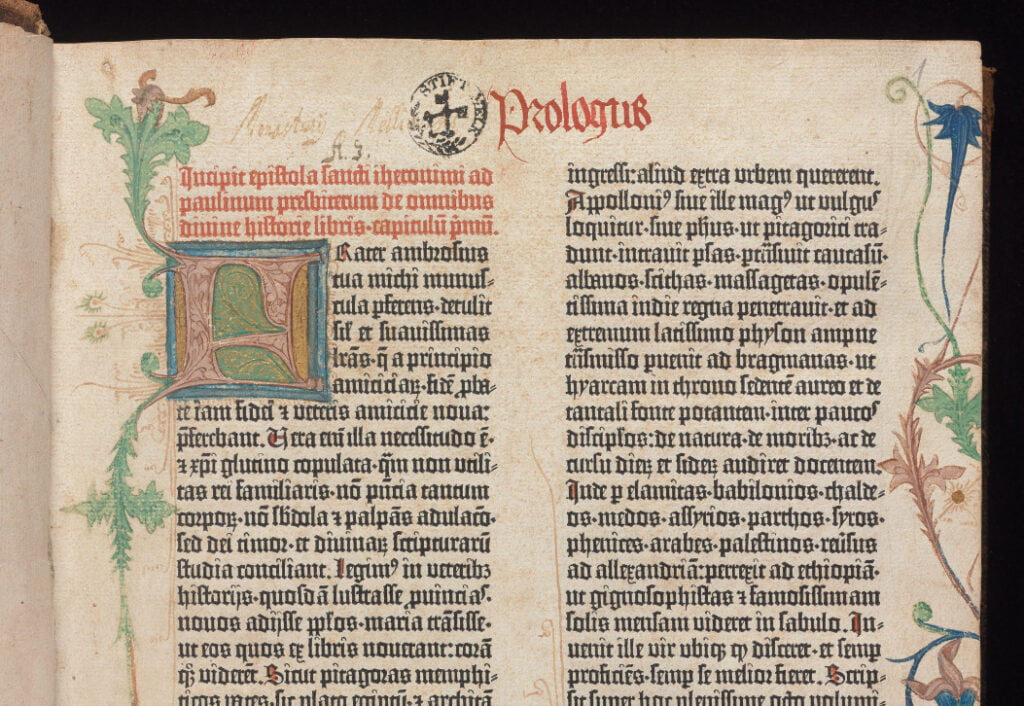 STIFT MELK
Prologus
Incipit epistola sancti iheronimi ad
paulinum presbiterum de omnibus
divine historie libris·capitulū p̄mū.
FRater ambrosius
tua michi munus-
cula ꝑferens·detulit
sil̛ et suavissimas
lr̄as·q̄ a principio
amiciciaꝝ·fidē ꝓba-
te iam fidei ⁊ veteris amicicie nova:
p̄ferebant. Uera enī illa necessitudo ē·
⁊ xp̄i glutino copulata·q̄m non utili-
tas rei familiaris·nō p̄ncia tantum
corpoꝝ·nō sb̄dola ⁊ palpās adulaco·
sed dei timor·et divinaꝝ scripturarū
studia conciliant. Legimꝰ in veteribꝫ
historijs·quosdā lustrasse ꝓvincias·
novos adijsse ppl̄os·maria trāsisse·
ut eos quos ex libris noverant: corā
qꝫ viderēt. Sicut pitagoras memphi-
ticos vates·sic plato egiptū ⁊ architā
ingressi: aliud extra urbem quererent.
Appolloniꝰ sive ille magꝰ ut vulgus
loquitur·sive ph̄us·ut pitagorici tra-
dunt·intravit ꝑsas·ꝑtrāsivit caucasū·
albanos·scithas·massagetas·opulē-
tissima indie regna penetravit·et ad
extremum latissimo physon ampne
trāsmisso ꝑvenit ad bragmanas·ut
hyarcam in throno sedentē aureo et de
tantali fonte potantem·inter paucos
discipl̄os: de natura·de moribꝫ·ac de
cursu dieꝝ et sideꝝ audiret docentem.
Inde ꝑ elamitas·babilonios·chalde-
os·medos·assyrios·parthos·syros·
phenices·arabes·palestinos·rev̄sus
ad allexandriā: perrexit ad ethiopiā·
ut gignosophistas ⁊ famosissimam
solis mensam videret in sabulo. In-
venit ille vir ubiqꝫ qꝫ disceret·et semꝑ
proficiēs·semꝑ se melior fieret. Scrip-
sit super hoc plenissime octo volumi-